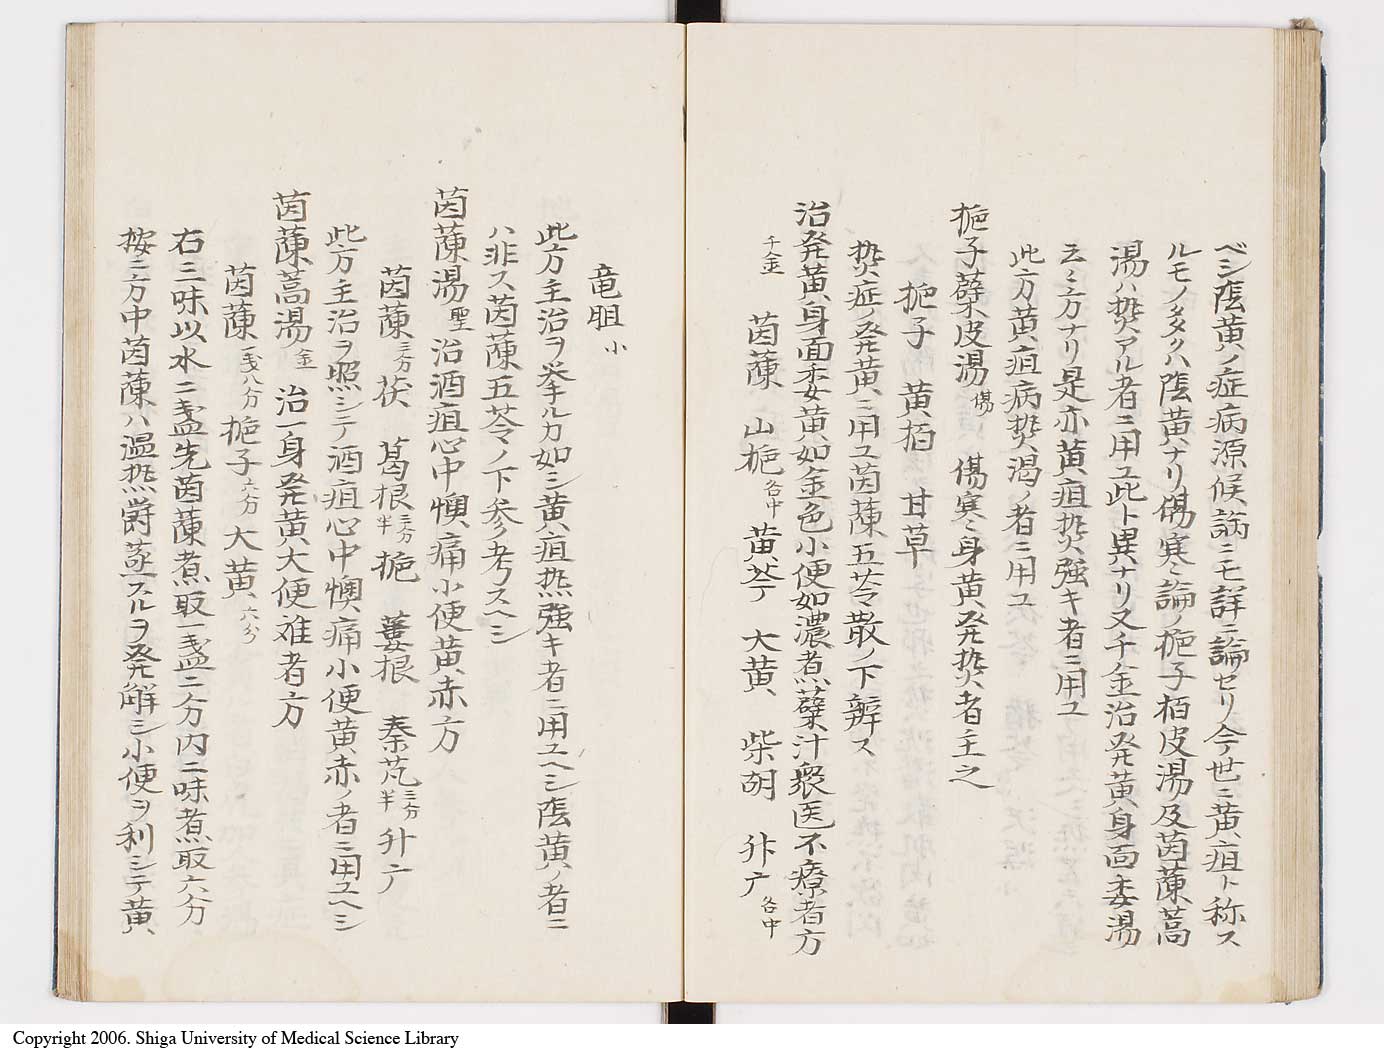 ベシ陰黄ノ症病源候論ニモ詳ニ論セリ今世ニ黄疸ト称ス
ルモノ多クハ陰黄ナリ傷寒論ノ梔子柏皮湯及茵蔯蒿
湯ハ熱アル者ニ用ユ此ト異ナリ又千金治発黄身面委湯
云々方ナリ是亦黄疸熱強キ者ニ用ユ
此方黄疸病熱渇ノ者ニ用ユ
梔子蘗皮湯 傷 傷寒身黄発熱者主之
梔子 黄柏 甘草
熱症ノ発黄ニ用ユ茵蔯五苓散ノ下辨ス
治発黄身面委黄如金色小便如濃煮蘗汁衆医不療者方
千金 茵蔯 山梔 各中 黄芩 大黄 柴胡 升广 各中
竜胆 小
此方主治ヲ挙ル力如シ黄疸熱強キ者ニ用ユヘシ陰黄ノ者ニ
ハ非ス茵蔯五苓ノ下参考スヘシ
茵蔯湯 聖 治酒疸心中懊痛小便黄赤方
茵蔯 三分 茯 葛根 三分半 梔 蔞根 秦艽 三分半 升广
此方主治ヲ照シテ酒疸心中懊痛小便黄赤ノ者ニ用ユヘシ
茵蔯蒿湯 金 治一身発黄大便难者方
茵蔯 戋八分 梔子 六分 大黄 六分
右三味以水二盞先茵蔯煮取一盞二分内二味煮取六分
按ニ方中茵蔯ハ温熱欝蒸スルヲ発解シ小便ヲ利シテ黄
Copyright 2006. Shiga University of Medical Science Library